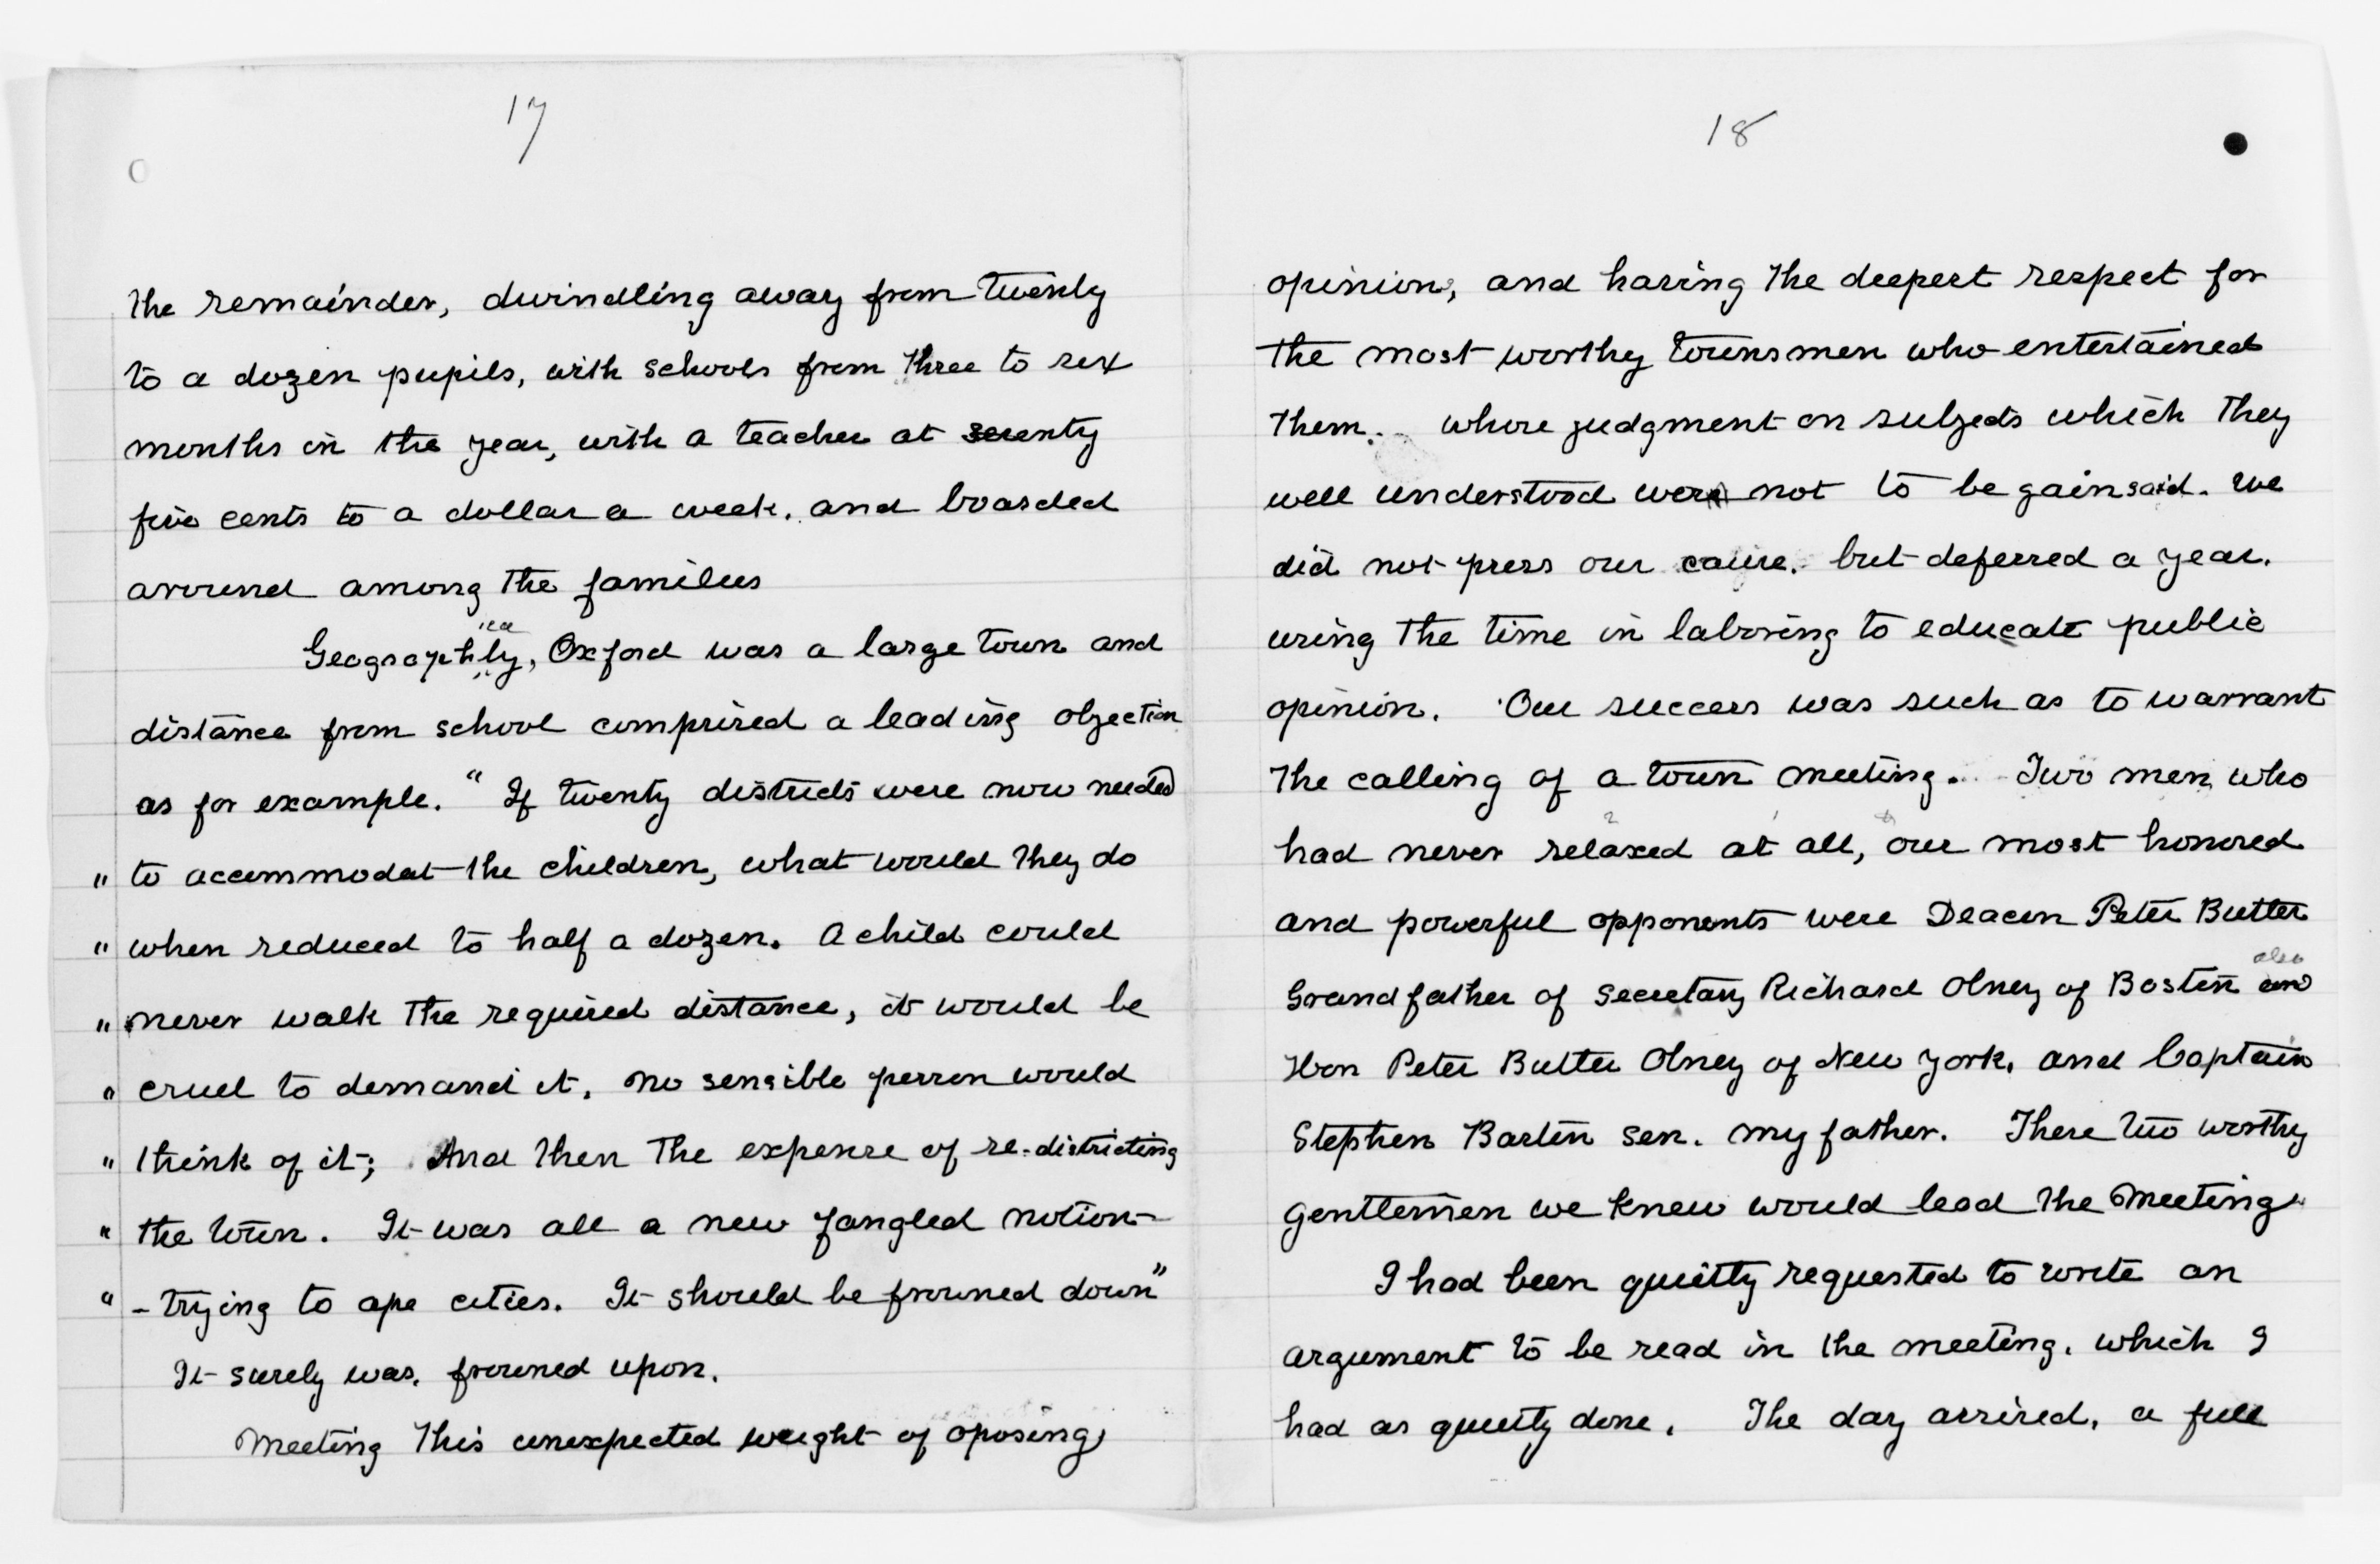 17
the remainder, dwindling away from twenty
to a dozen pupils, with schools from three to six
months in the year, with a teacher at seventy
five cents to a dollar a week. and boarded
around among the families
ica
Geographly, Oxford was a large town and
distance from school comprised a leading objection
as for example. " If twenty districts were now needed
" to accommodat the children, what would they do
" when reduced to half a dozen. A child could
" never walk the required distance, it would be
" cruel to demand it. no sensible person would
" think of it; And then the expense of re-districting
" the town. It was all a new fangled notion
" - trying to ape cities. It should be frowned down"
It surely was. frowned upon.
Meeting this unexpected weight of oposing
18
opinion, and having the deepest respect for
the most worthy townsmen who entertained
them. whose judgment on subjects which they
well understood were not to be gainsaid. we
did not press our cause. but deferred a year.
using the time in laboring to educate public
opinion. Our success was such as to warrant
the calling of a town meeting. Two men, who
had never relaxed at all, our most honored
and powerful opponents were Deacon Peter Butler
also
Grandfather of Secretary Richard Olney of Boston and
Hon Peter Butler Olney of New York. and Captain
Stephen Barton sen. my father. These two worthy
gentlemen we knew would lead the meeting.
I had been quietly requested to write an
argument to be read in the meeting. which I
had as quietly done. The day arrived. a full